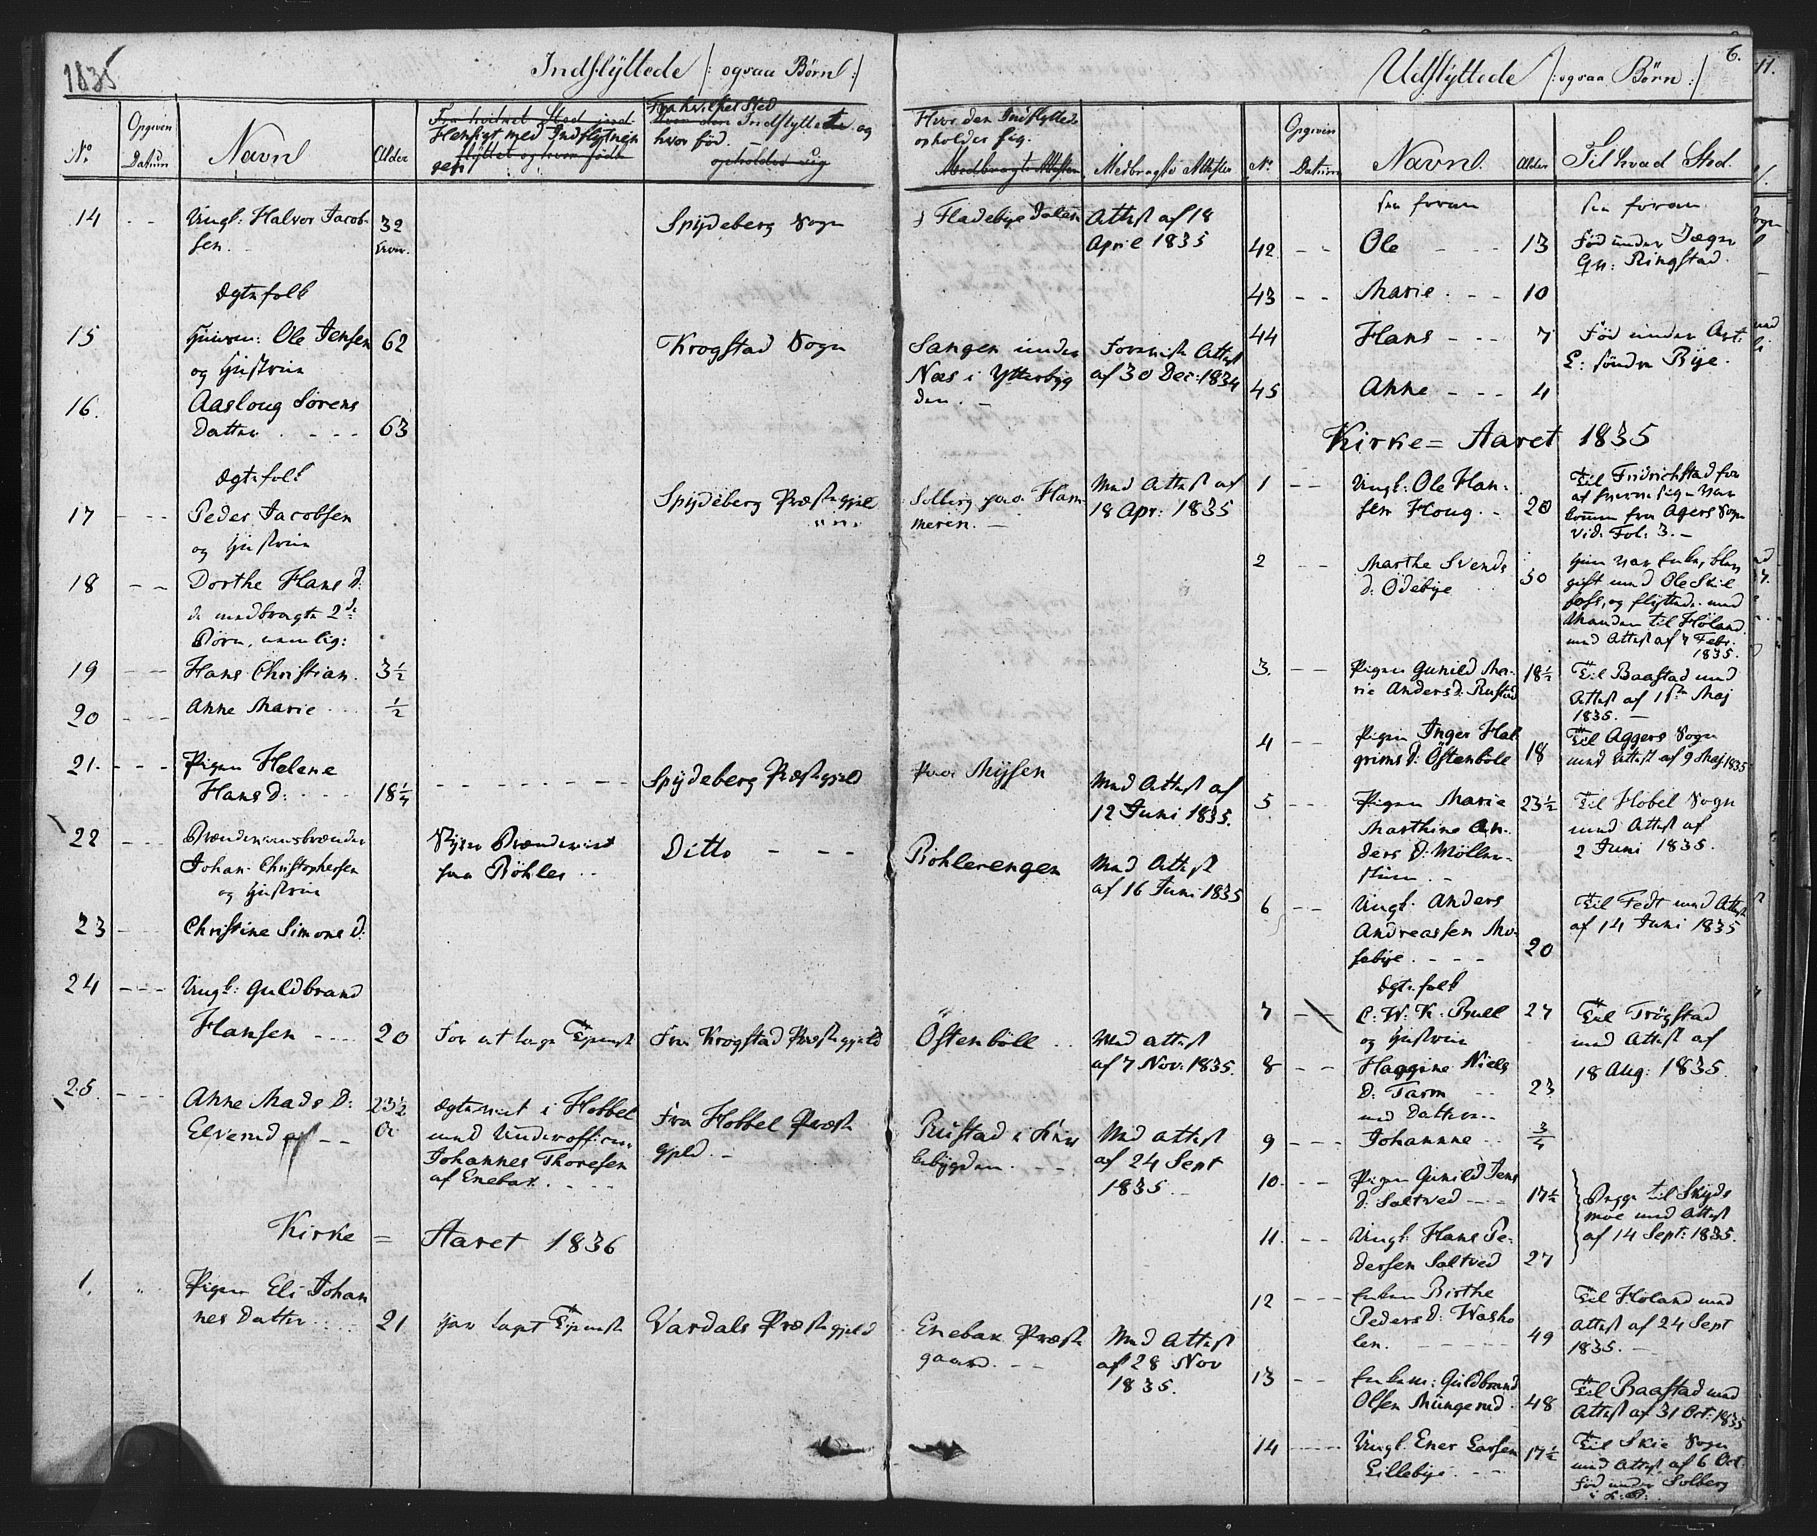 1835
Indflyttede /: ogsaa Børn :/
No.
Opgiven
Datum
Navn
Alder
Hensigt med Indflytnin
gen
Fra hvilket Sted
Indflyttede og
hvor fød.
14 Ungk: Halvor Jacob- 32 Spydeberg Sogn
sen.
Ægtefolk
15 Ole Jensen 62 Krogstad Sogn
og Hustrue
16. Aasloug Sørens
Datter 63
Ægtefolk
17 Peder Jacobsen Spydeberg Præstegjeld
og Hustrue
18 Dorthe Hans D:
de medbragte 2de
Børn, nemlig:
19 Hans Christian. 3½
20 Anne Marie ½
21. Pigen Helene Spydeberg Præstegjeld
Hans D: 18¼
22 Johan Christophersen Ditto
og Hustrue
paa Böhler
23 Christine Simons D:
24 Ungk: Guldbrand
Hansen 20 For at tage Tjeneste Fra Krogstad Præstegjeld
25. Anne Mads D: 23½ Ægteviet i Hobbel Fra Hobbel Præste
Elverud med Underofficeer gjeld.
Johannes Thoresen
af Enebak.
Kirke = Aaret 1836
1. Pigen Eli Johan
nes Datter 21 har taget Tjeneste Vardals Præstegjeld
6.
Hvor den Indflyttede
opholder sig.
Medbragte Attester
Fladebye Dalen Attest af 18
April 1835
Sangen under Forenist Attest
Næs i Ytterbyg af 30 Dec: 1834
den.
Solberg paa Ham- Med Attest af
meren. 18 Apr: 1835
paa Mysen Med Attest af
12 Juni 1835.
Böhlerengen Med Attest
af 16 Juni 1835
Östenböll Med Attest
af 7 Nov: 1835.
Rustad i Kir Med Attest
kebygden. af 24 Sept
1835.
Enebak Præste Med Attest
gaard. af 28 Nov
1835.
Udflyttede /: ogsaa Børn :/
No.
Opgiven
Datum
Navn.
Alder
Til hvad Sted.
see foran see foran.
42 Ole 13 Fød under Jægn
Gr: Ringstad.
43 Marie 10
44 Hans 7 Fød under
söndre Bye.
45 Anne 4
Kirke = Aaret 1835
1 Ungk: Ole Han- Til Fridrichstad for
sen Houg. 20 at
kommen fra Agers Sogn
vid. Fol: 3.
2 Marthe Svends Hun var Enke, blev
D: Ödebye 50 gift med Ole
foss, og flyttede med
Manden til Höland.
med Attest af 7 Febr:
1835.
3. Pigen Gunild Ma- 18½ Til Baastad med
rie Anders D: Rustad Attest af Maj
1835.
4 Pigen Inger Hal Til Aggers Sogn
grims D: Östenböle 18 med Attest af 9 Maj 1835
5 Pigen Marie 23½ Til Hobel Sogn
Marthine An- med Attest af
ders D: Möller- 2 Juni 1835.
6 Ungk: Anders Til Fedt med Attest
Andreassen Mo- af 14 Juni 1835
sebye 20
Ægtefolk
7 C. W. K. Bull 27 Til Trögstad
og Hustrue med Attest af
8 Haagine Niels 18 Aug: 1835.
D: Tarm 23
med Datter
9 Johannne ¾
10. Pigen Gunild Jens
D: Saltved 17½ Begge til Skyds
moe med Attest
af 14 Sept: 1835.
11. Ungk: Hans Pe-
dersen Saltved 27
12 Enken Birthe Til Höland med
Peders D: Washo Attest af 24 Sept
len. 49 1835.
13 Enkem: Guldbrand Til Baastad med
Olsen Mungerud 48 Attest af 31 Oct: 1835
14 Ungk: Ener Larsen 17½ Til Skie Sogn
Lillebye. med Attest af 6 Oct.
Fød under Solberg